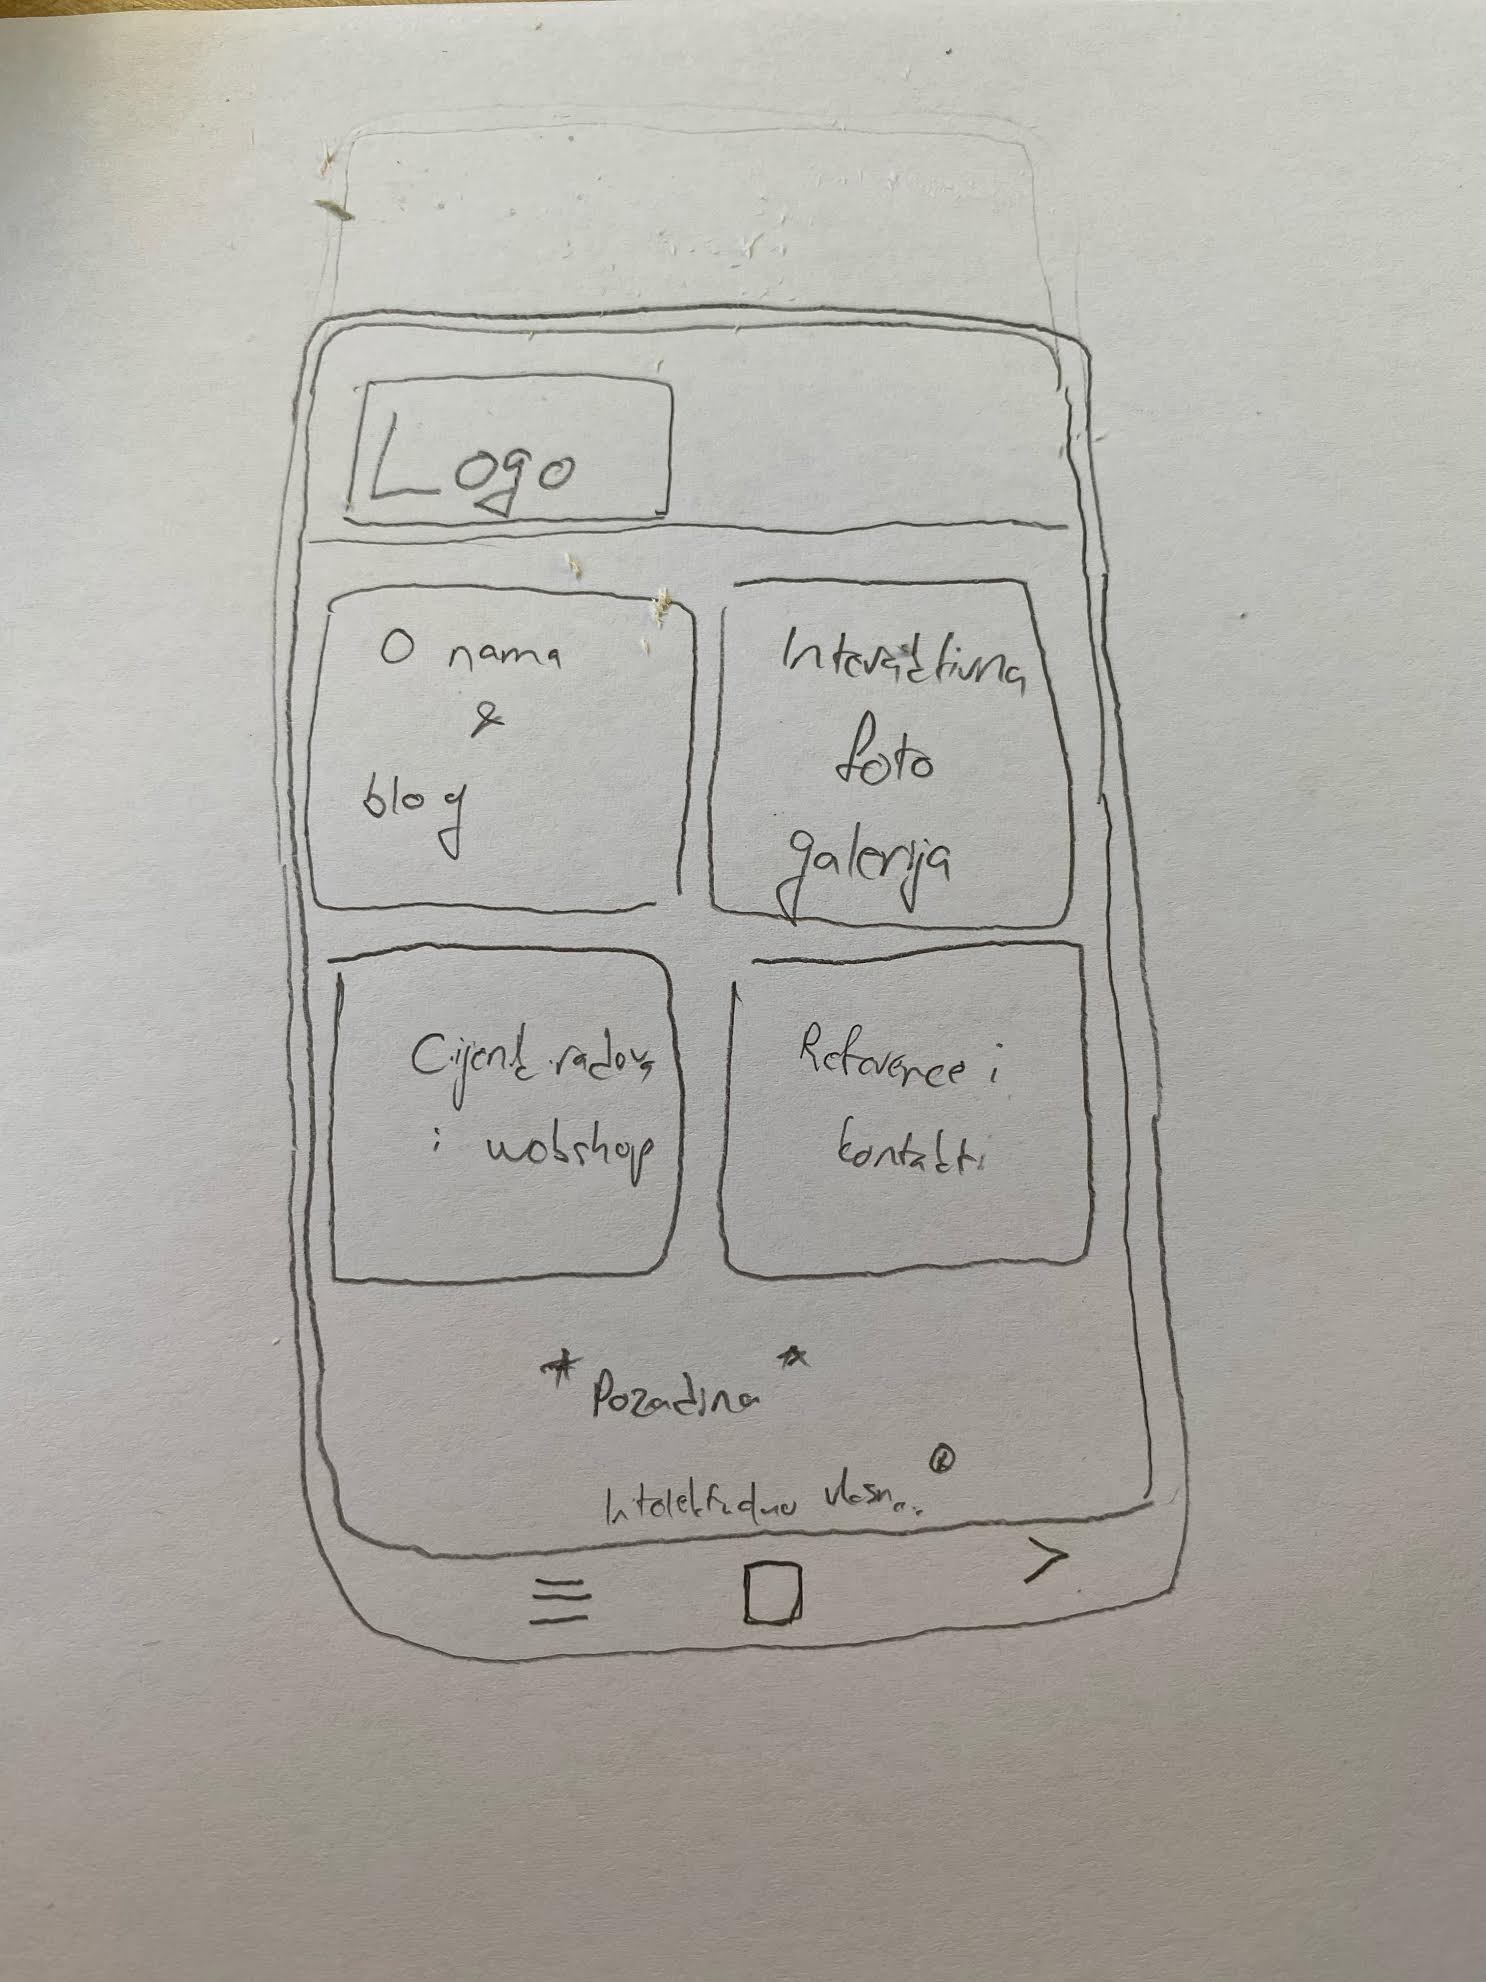 Logo
O nama
&
blog
Interaktivna
foto
galerija
Cijenk radova
i webshop
Reference i
kontakti
* Pozadina *
Intelektualno vlasn... ®